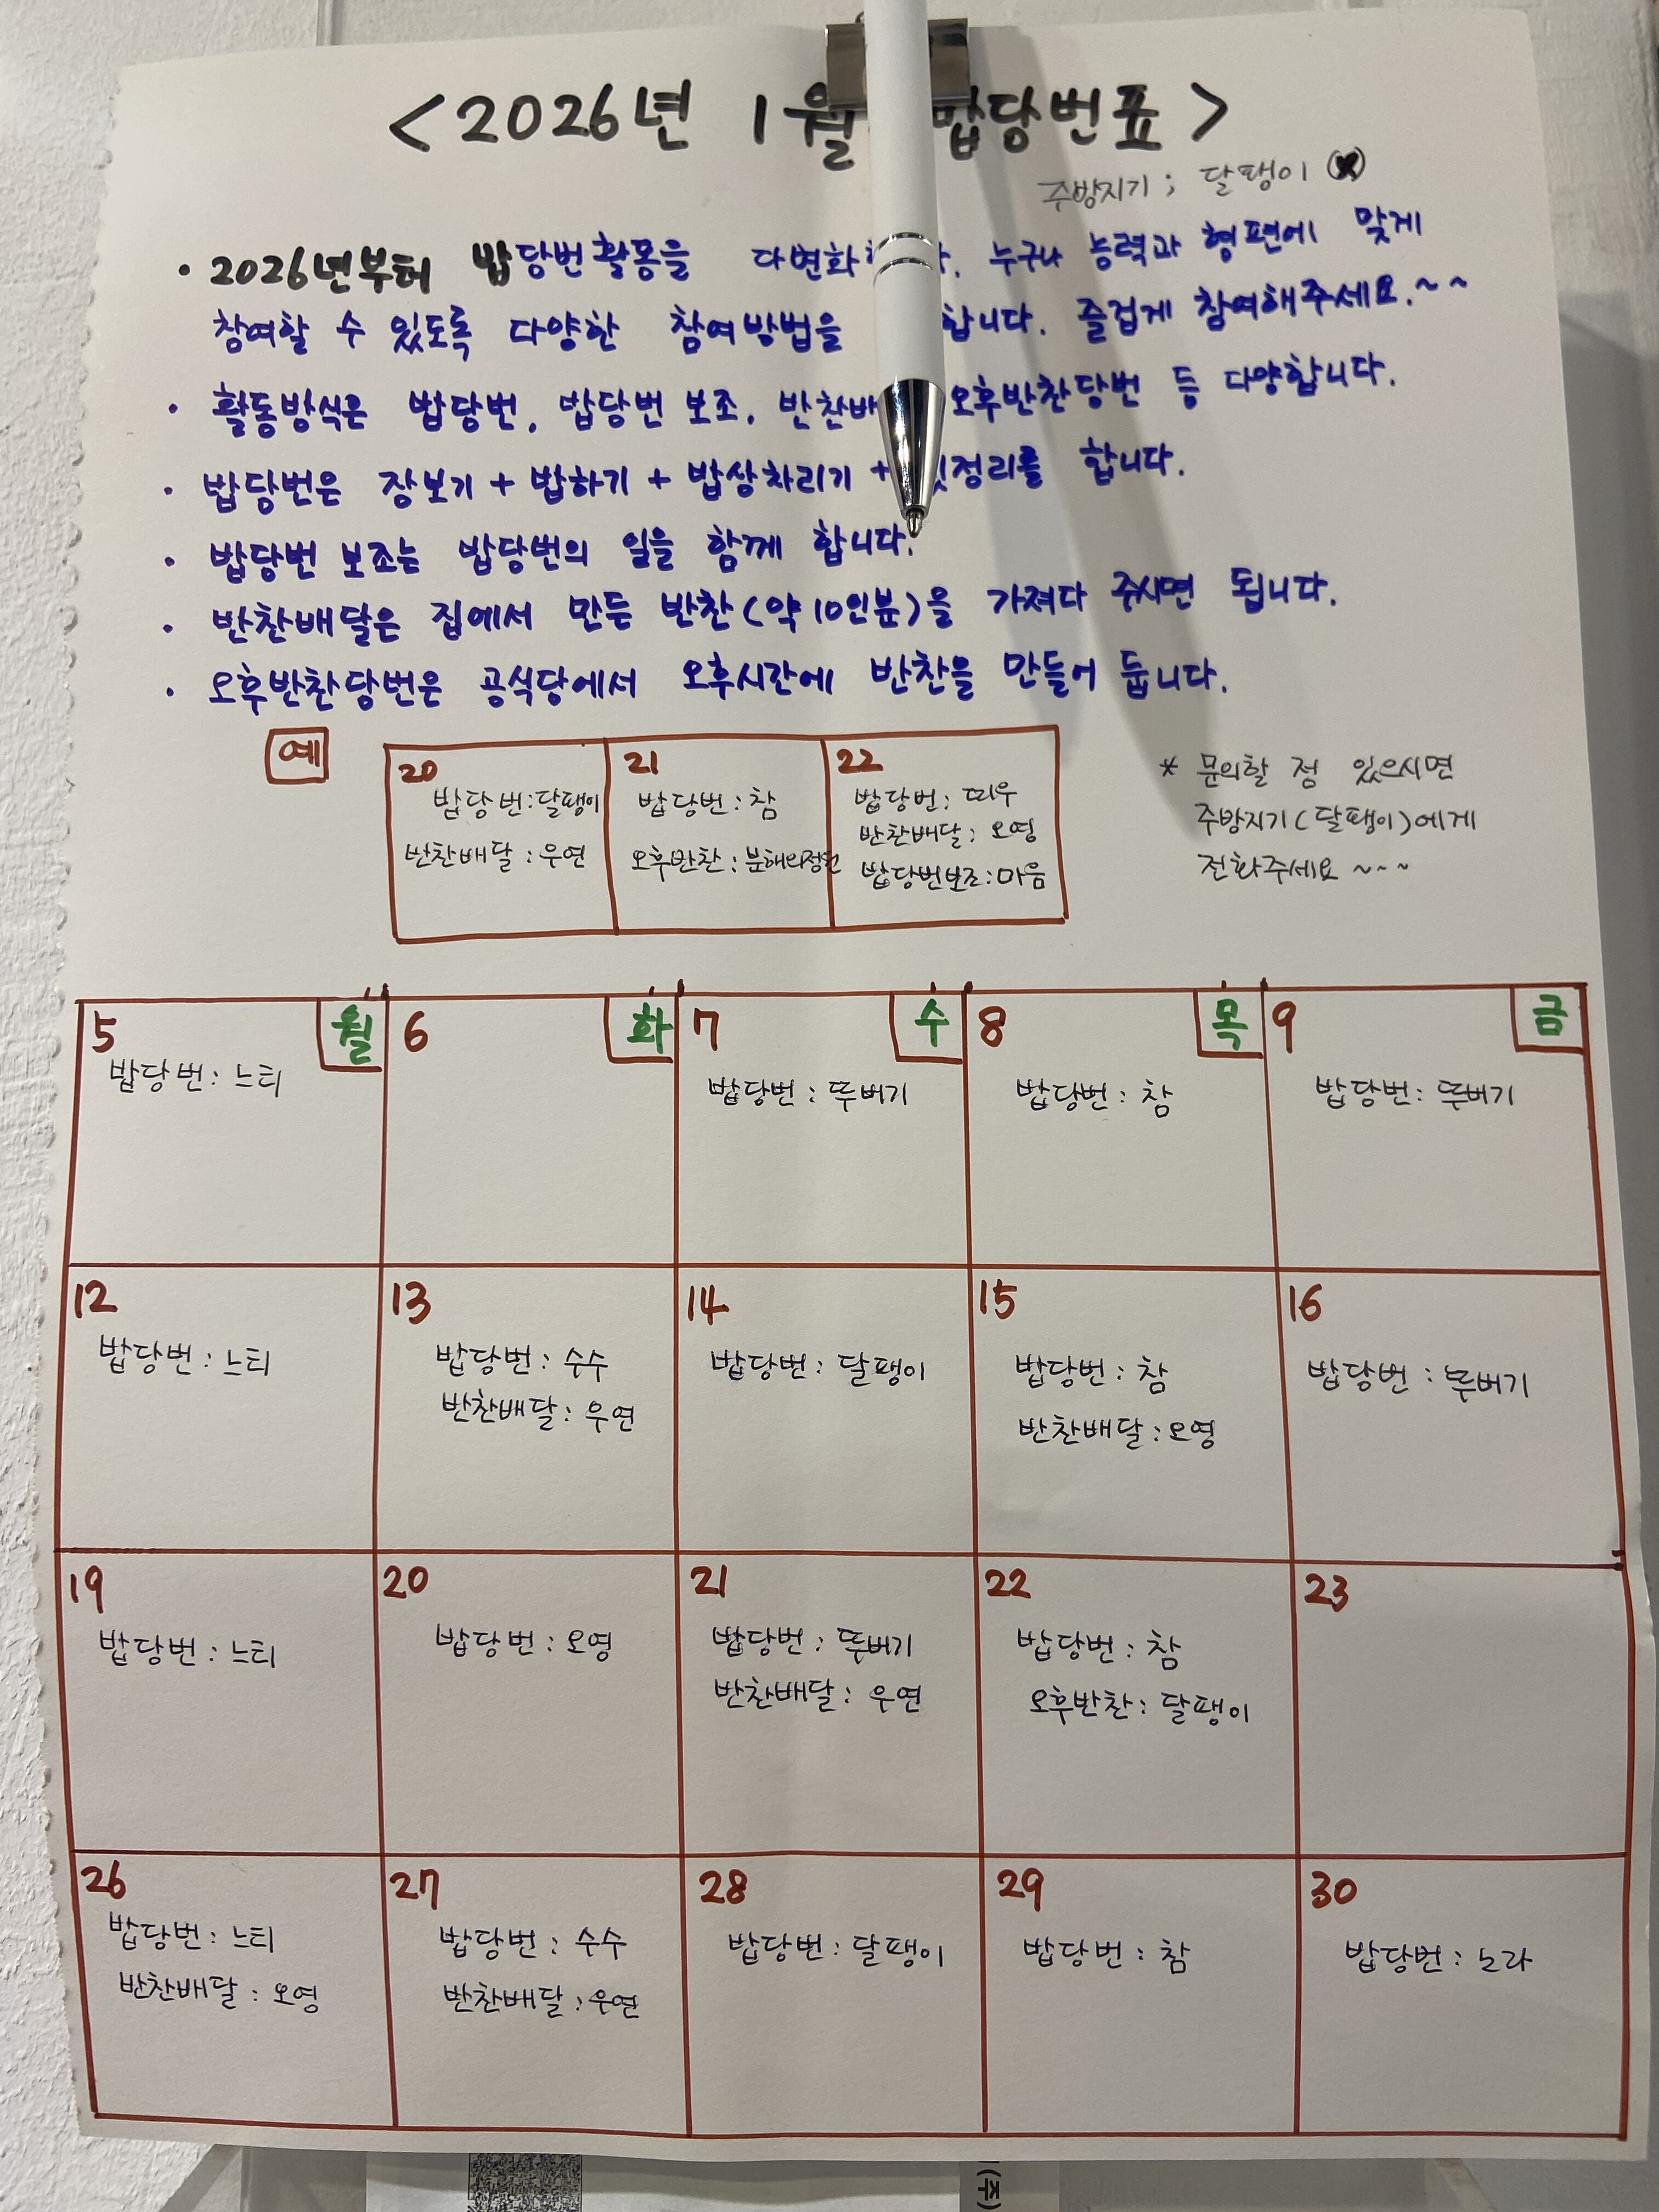 <2026년 1월 밥당번표>
주방지기; 달팽이
• 2026년부터 밥당번활동을 다변화 누구나 능력과 형편에 맞게
참여할 수 있도록 다양한 참여방법을 합니다. 즐겁게 참여해주세요.~~
• 활동방식은 밥당번, 밥당번 보조, 오후반찬당번 등 다양합니다.
• 밥당번은 장보기 + 밥하기 + 밥상차리기 + 합니다.
• 밥당번 보조는 밥당번의 일을 함께 합니다.
• 반찬배달은 집에서 만든 반찬(약10인분)을 가져다 주시면 됩니다.
• 오후반찬당번은 공식당에서 오후시간에 반찬을 만들어 둡니다.
예
20
밥당번:달팽이
반찬배달:우연
21
밥당번:참
오후반찬:분해의정원
22
밥당번: 띠우
반찬배달: 오영
밥당번보조:마음
* 문의할 점 있으시면
주방지기(달팽이)에게
전화주세요~~~
5 월
밥당번: 느티
6 화
7 수
밥당번: 뚜버기
8 목
밥당번: 참
9 금
밥당번: 뚜버기
12
밥당번: 느티
13
밥당번: 수수
반찬배달: 우연
14
밥당번: 달팽이
15
밥당번: 참
반찬배달:오영
16
밥당번: 뚜버기
19
밥당번: 느티
20
밥당번: 오영
21
밥당번: 뚜버기
반찬배달: 우연
22
밥당번: 참
오후반찬: 달팽이
23
26
밥당번: 느티
반찬배달: 오영
27
밥당번: 수수
반찬배달: 우연
28
밥당번: 달팽이
29
밥당번: 참
30
밥당번: 노라
(주)